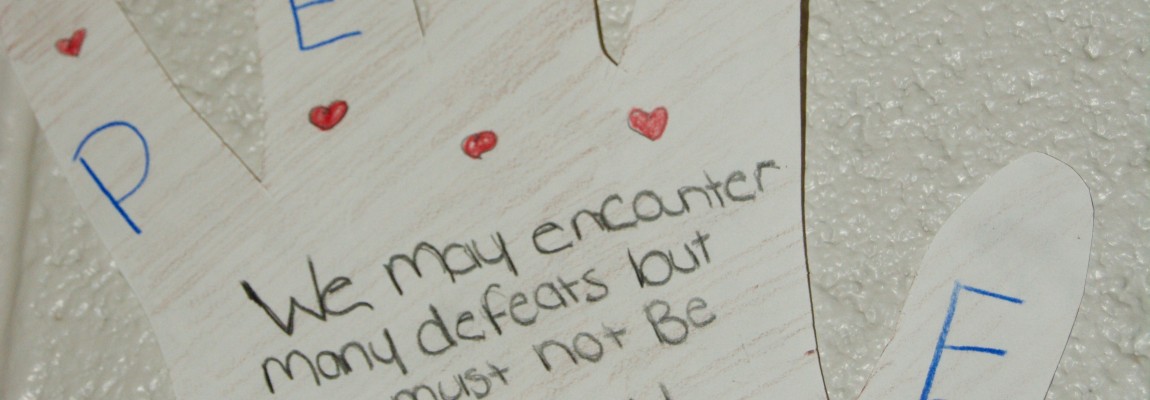 P
E
E
We may encounter
many defeats but
must not Be